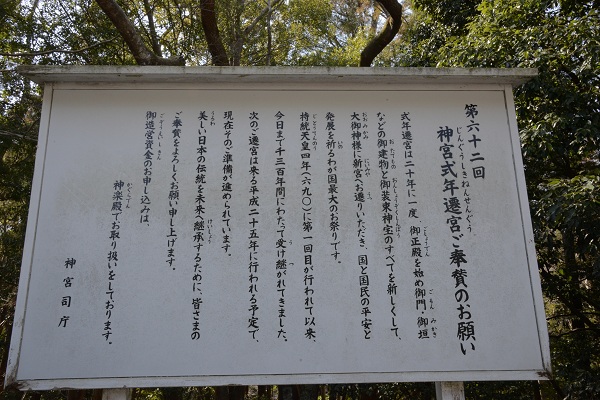 第六十二回
神宮式年遷宮ご奉賛のお願い
式年遷宮は二十年に一度 御正殿を始め御門・御垣
などの御建物と御装束神宝のすべてを新しくして、
大御神様に新宮へお遷りいただき、国と国民の平安と
発展を祈るわが国最大のお祭りです。
持統天皇四年(六九〇)に第一回目が行われて以来、
今日まで千三百年間にわたって受け継がれてきました。
次のご遷宮は来る平成二十五年に行われる予定で、
現在そのご準備が進められています。
美しい日本の伝統を未来へ継承するために、皆さまの
ご奉賛をよろしくお願い申し上げます。
御造営資金のお申し込みは、
神楽殿でお取り扱いをしております。
神宮司庁